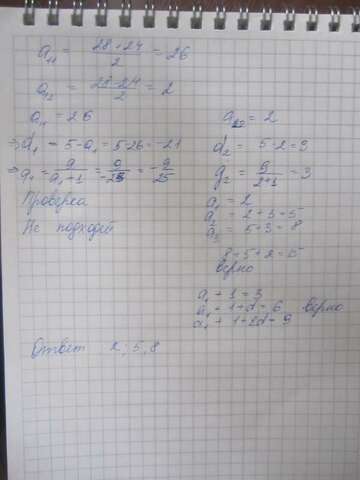 a₁₁ = (28+24)/2 = 26
a₁₂ = (28-24)/2 = 2
a₁₁ = 26
⇒ d₁ = 5-a₁ = 5-26 = -21
Проверка
Не подходит
a₁₂ = 2
d₂ = 5-2 = 3
a₁ = 2
a₂ = 2+3=5
a₃ = 5+3=8
8+5+2=15
верно
a₁+1=3
a₁+1+d=6 верно
a₁+1+2d=9
Ответ 2; 5; 8